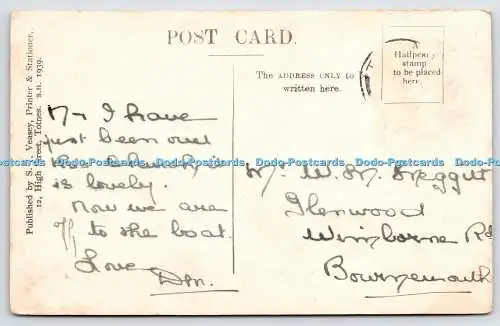 POST CARD.
A
Halfpenny
stamp
to be placed
here.
The ADDRESS ONLY to be
written here.
Published by S. Veasey, Printer & Stationer,
12, High Street, Totnes. S.H. 1939.
I have
just been over
this church it
is lovely.
Now we are
off to the boat.
Love
Dodo-Postcards Dodo-Postcards Dodo-Postcards Dodo-Postcards Dodo-Postcards
W. M.
Glenwood
Wimborne Rd
Bournemouth